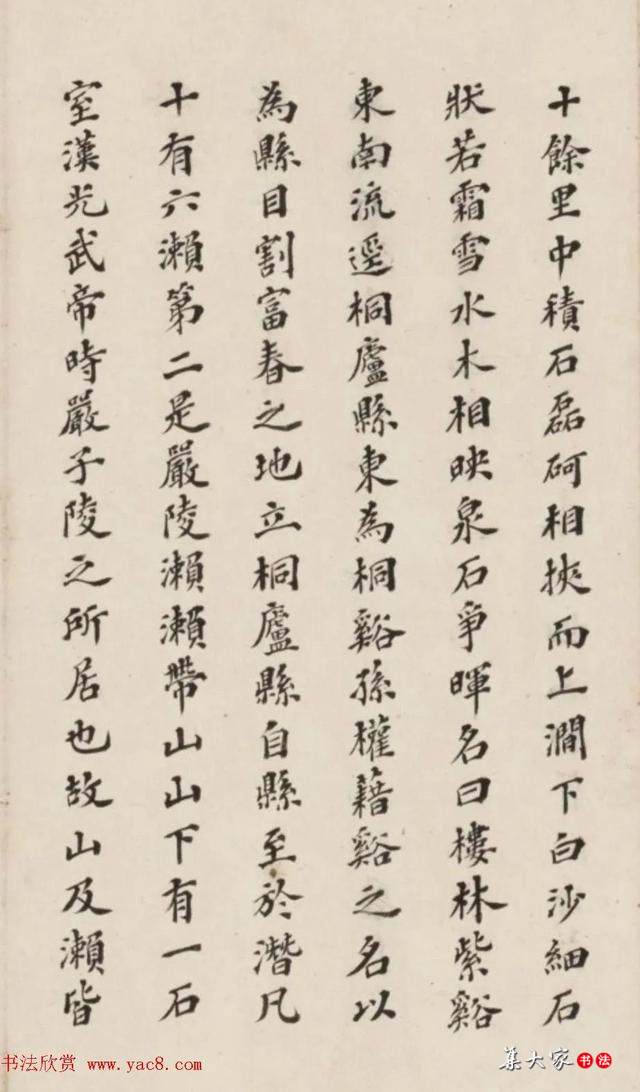 十餘里中積石磊砢相挾而上澗下白沙細石
狀若霜雪水木相映泉石爭暉名曰樓林紫谿
東南流逕桐廬縣東為桐谿孫權藉谿之名以
為縣目割富春之地立桐廬縣自縣至於潛凡
十有六瀨第二是嚴陵瀨瀨帶山山下有一石
室漢光武帝時嚴子陵之所居也故山及瀨皆
书法欣赏 www.yac8.com
集大家 书法